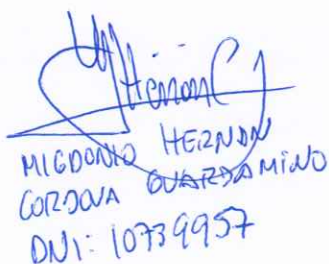 Hernan C
MIGDONIO HERNAN
CORDOVA GUARDAMINO
DNI: 10739957